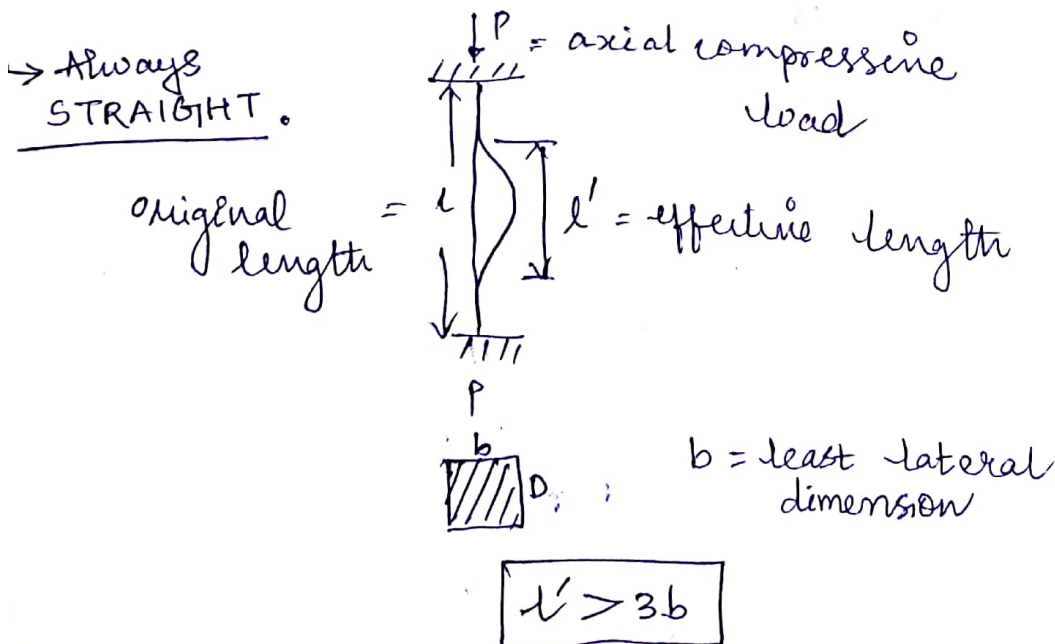 → Always
STRAIGHT.
P = axial compressive
load
original = l
length
l' = effective length
P
b
D
b = least lateral
dimension
l' > 3b